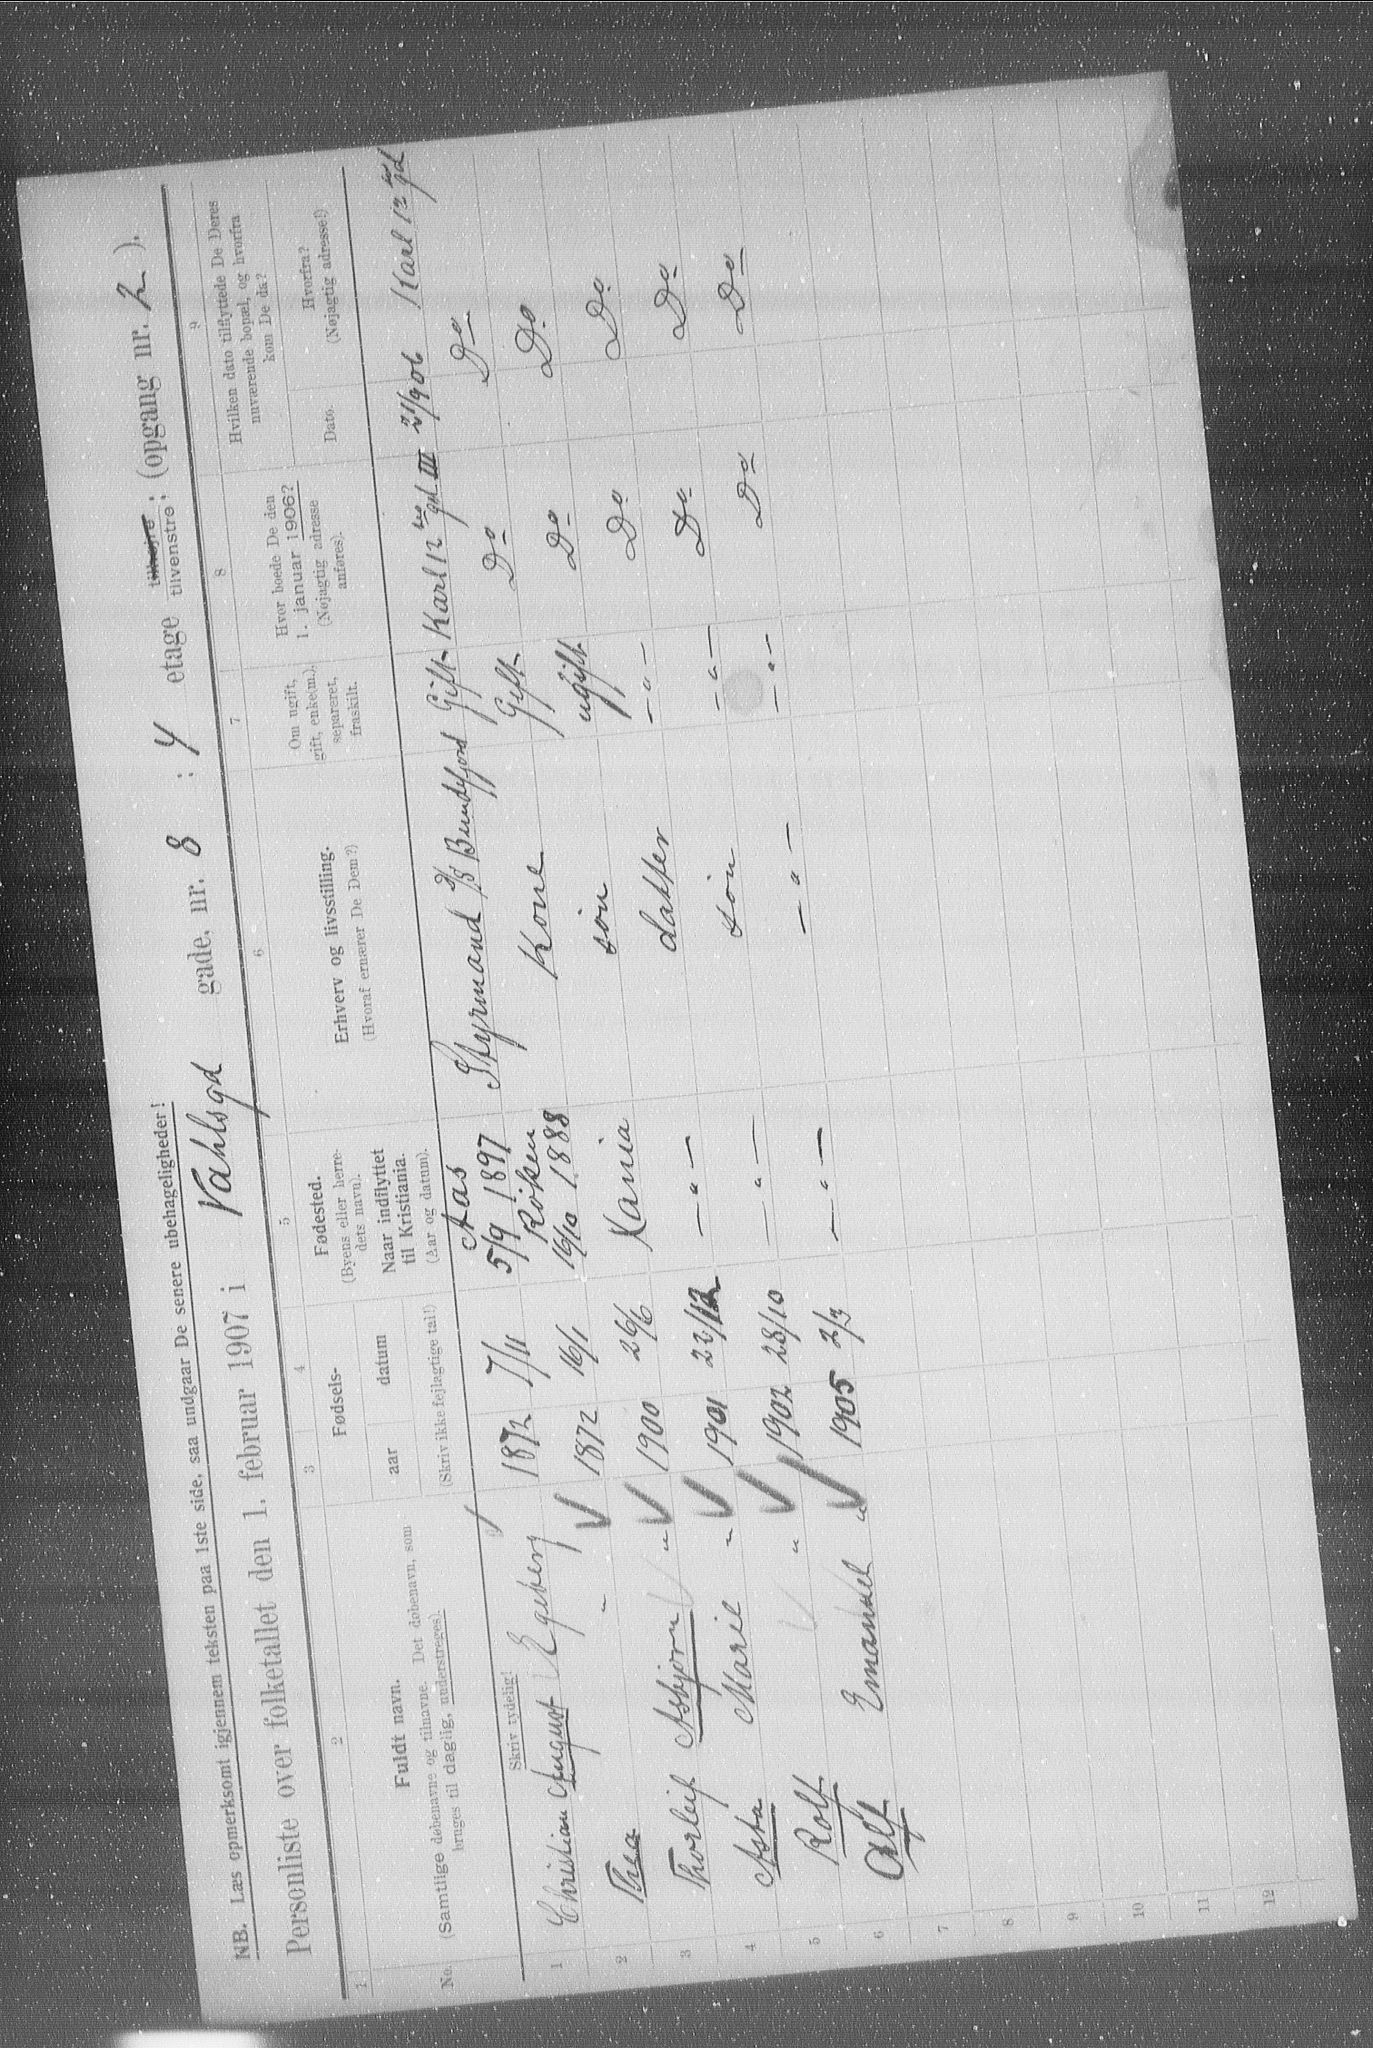 NB. Læs opmerksomt igjennem teksten paa 1ste side, saa undgaar De senere ubehageligheder!
Personliste over folketallet den 1. februar 1907 i Vahlsgd gade, nr. 8 : 4 etage tilhøjre, tilvenstre; (opgang nr. 2).
1 2 3 4 5 6 7 8 9
No. Fuldt navn.
(Samtlige døbenavne og tilnavne. Det døbenavn, som
bruges til daglig, understreges).
Skriv tydelig!
Fødsels-
aar datum
(Skriv ikke fejlagtige tal!)
Fødested.
(Byens eller herre-
dets navn).
Naar indflyttet
til Kristiania.
(Aar og datum).
Erhverv og livsstilling.
(Hvoraf ernærer De Dem?)
Om ugift,
gift, enke(m.),
separeret,
fraskilt.
Hvor boede De den
1. januar 1906?
(Nøjagtig adresse
anføres).
Hvilken dato tilflyttede De Deres
nuværende bopæl, og hvorfra
kom De da?
Dato.
Hvorfra?
(Nøjagtig adresse!)
1 Christian August Egeberg 1872 7/11 Aas 5/9 1897 Styrmand D/S Bundefjord Gift Karl 12 gd III 21/9 06 Karl 12 gd
2 Thea " 1872 16/1 Röken 16/10 1888 Kone Gift Do Do
3 Thorleif Asbjørn " 1900 26/6 Xania sön ugift Do Do
4 Asta Marie " 1901 22/12 — " — datter — " — Do Do
5 Rolf " 1902 28/10 — " — sön — " — Do Do
6 Alf Emanuel " 1905 2/3 — " — — " — — " — Do Do
7
8
9
10
11
12